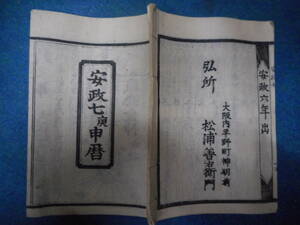 安政六年
弘所
大阪内平野町神明前
松浦善右衛門
安政七庚申暦